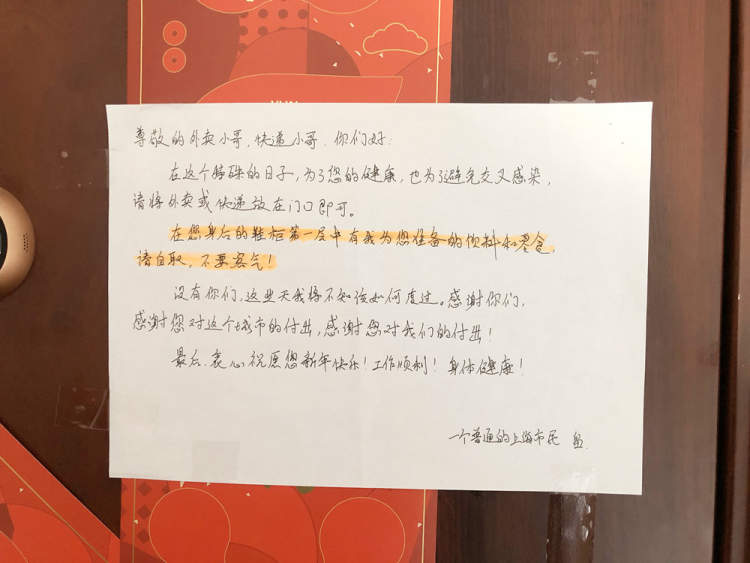 尊敬的外卖小哥,快递小哥,你们好:
在这个特殊的日子,为了您的健康,也为了避免交叉感染,
请将外卖或快递放在门口即可。
在您身后的鞋柜第一层中有我为您准备的饮料和零食,
请自取,不要客气!
没有你们,这些天我将不知该如何度过。感谢你们,
感谢您对这个城市的付出,感谢您对我们的付出!
最后,衷心祝愿您新年快乐!工作顺利!身体健康!
一个普通的上海市民